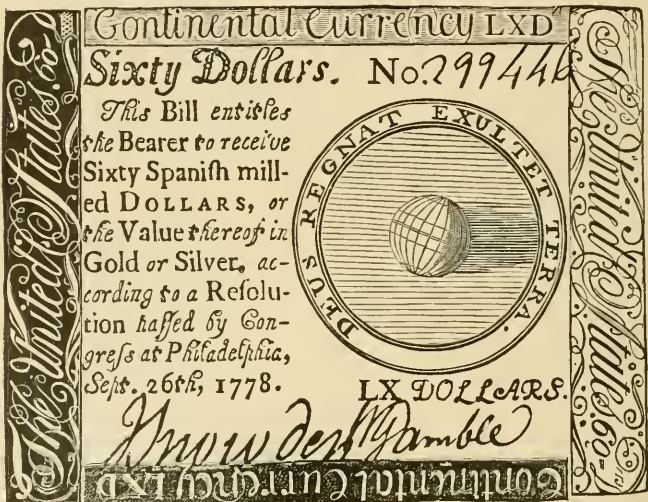 Continental Currency LXD
Sixty Dollars. No. 299446
This Bill entitles
the Bearer to receive
Sixty Spaniſh mill-
ed DOLLARS, or
the Value thereof in
Gold or Silver, ac-
cording to a Reſolu-
tion paſſed by Con-
greſs at Philadelphia,
Sept. 26th, 1778.
DEUS REGNAT EXULTET TERRA.
LX DOLLARS.
Gamble
The United States.60-
The United States.60-
Continental Currency LXD